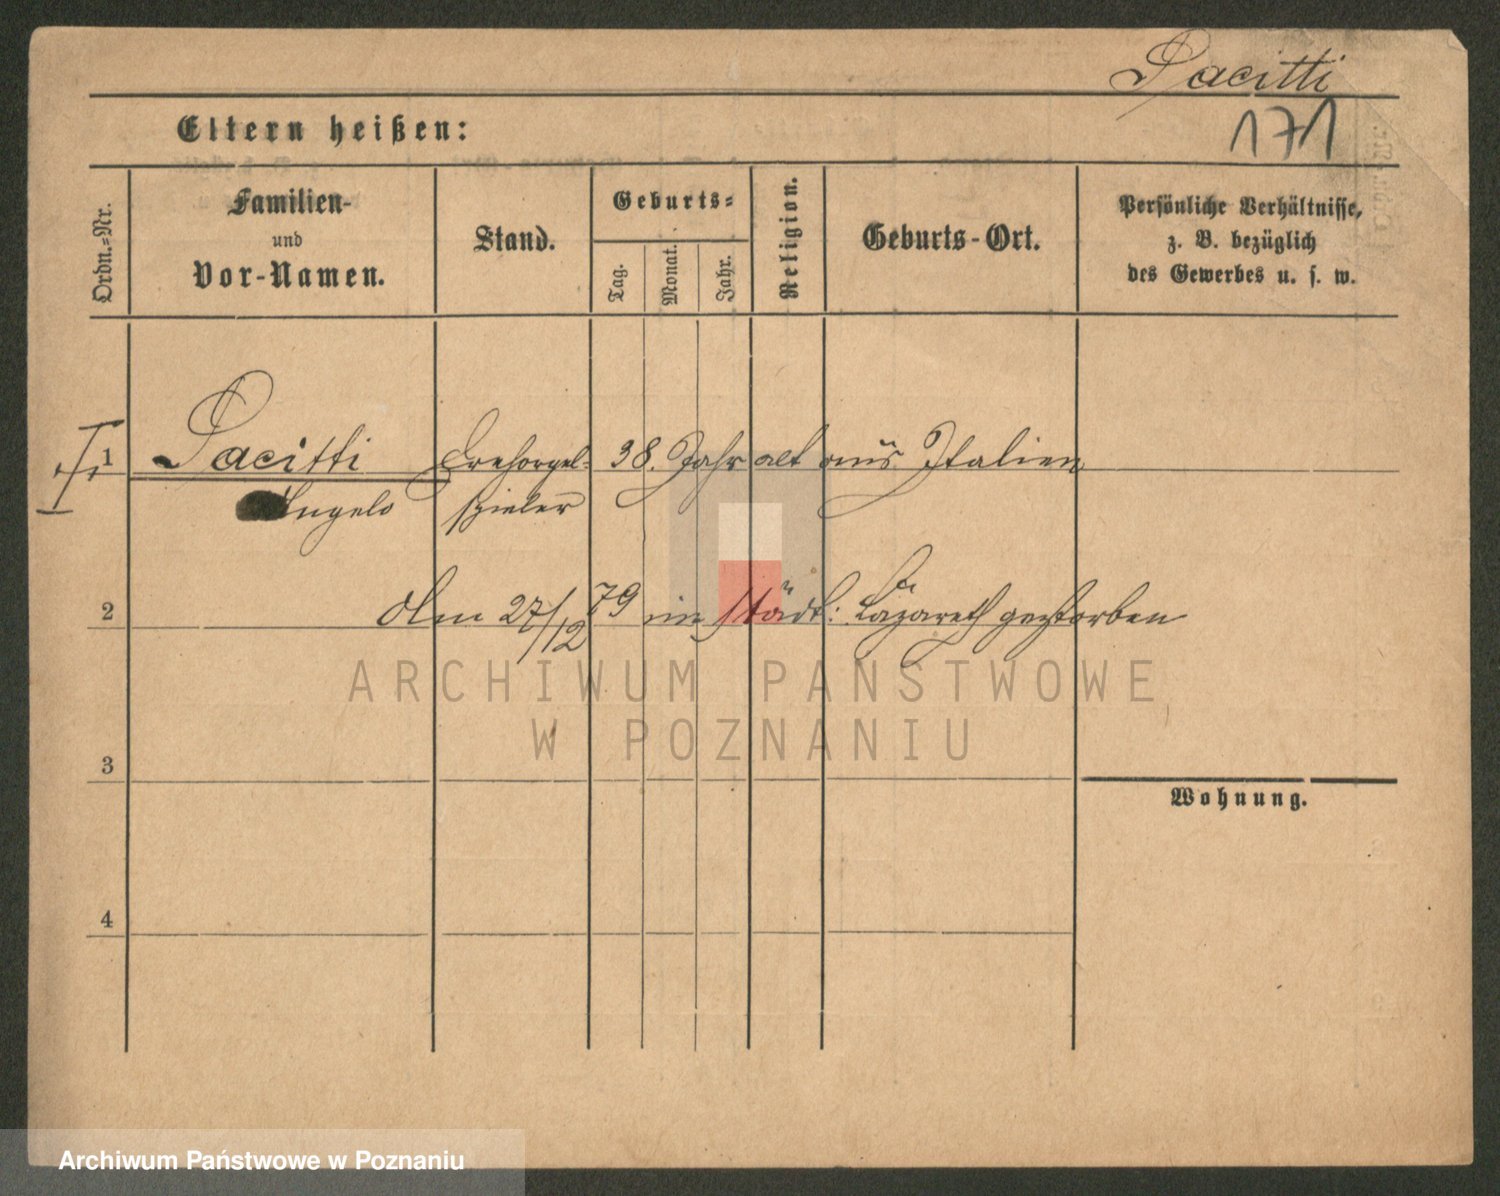 Pacitti
171
Eltern heißen:
Ordn.=Nr.
Familien-
und
Vor-Namen.
Stand.
Geburts=
Tag.
Monat.
Jahr.
Religion.
Geburts-Ort.
Persönliche Verhältnisse,
z. B. bezüglich
des Gewerbes u. s. w.
1 Pacitti Drehorgel= 38. Jahr alt aus Italien
Angelo spieler
2 Am 27/12 79 im städt: Lazareth gestorben
ARCHIWUM PAŃSTWOWE
W POZNANIU
3
Wohnung.
4
Archiwum Państwowe w Poznaniu